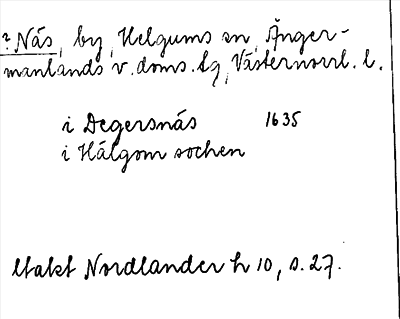 ? Näs, by, Helgums sn, Ånger-
manlands v. doms. tg, Västernorrl. l.
i Degersnäs 1635
i Hälgom sochen
Utakt Nordlander h 10, s. 27.